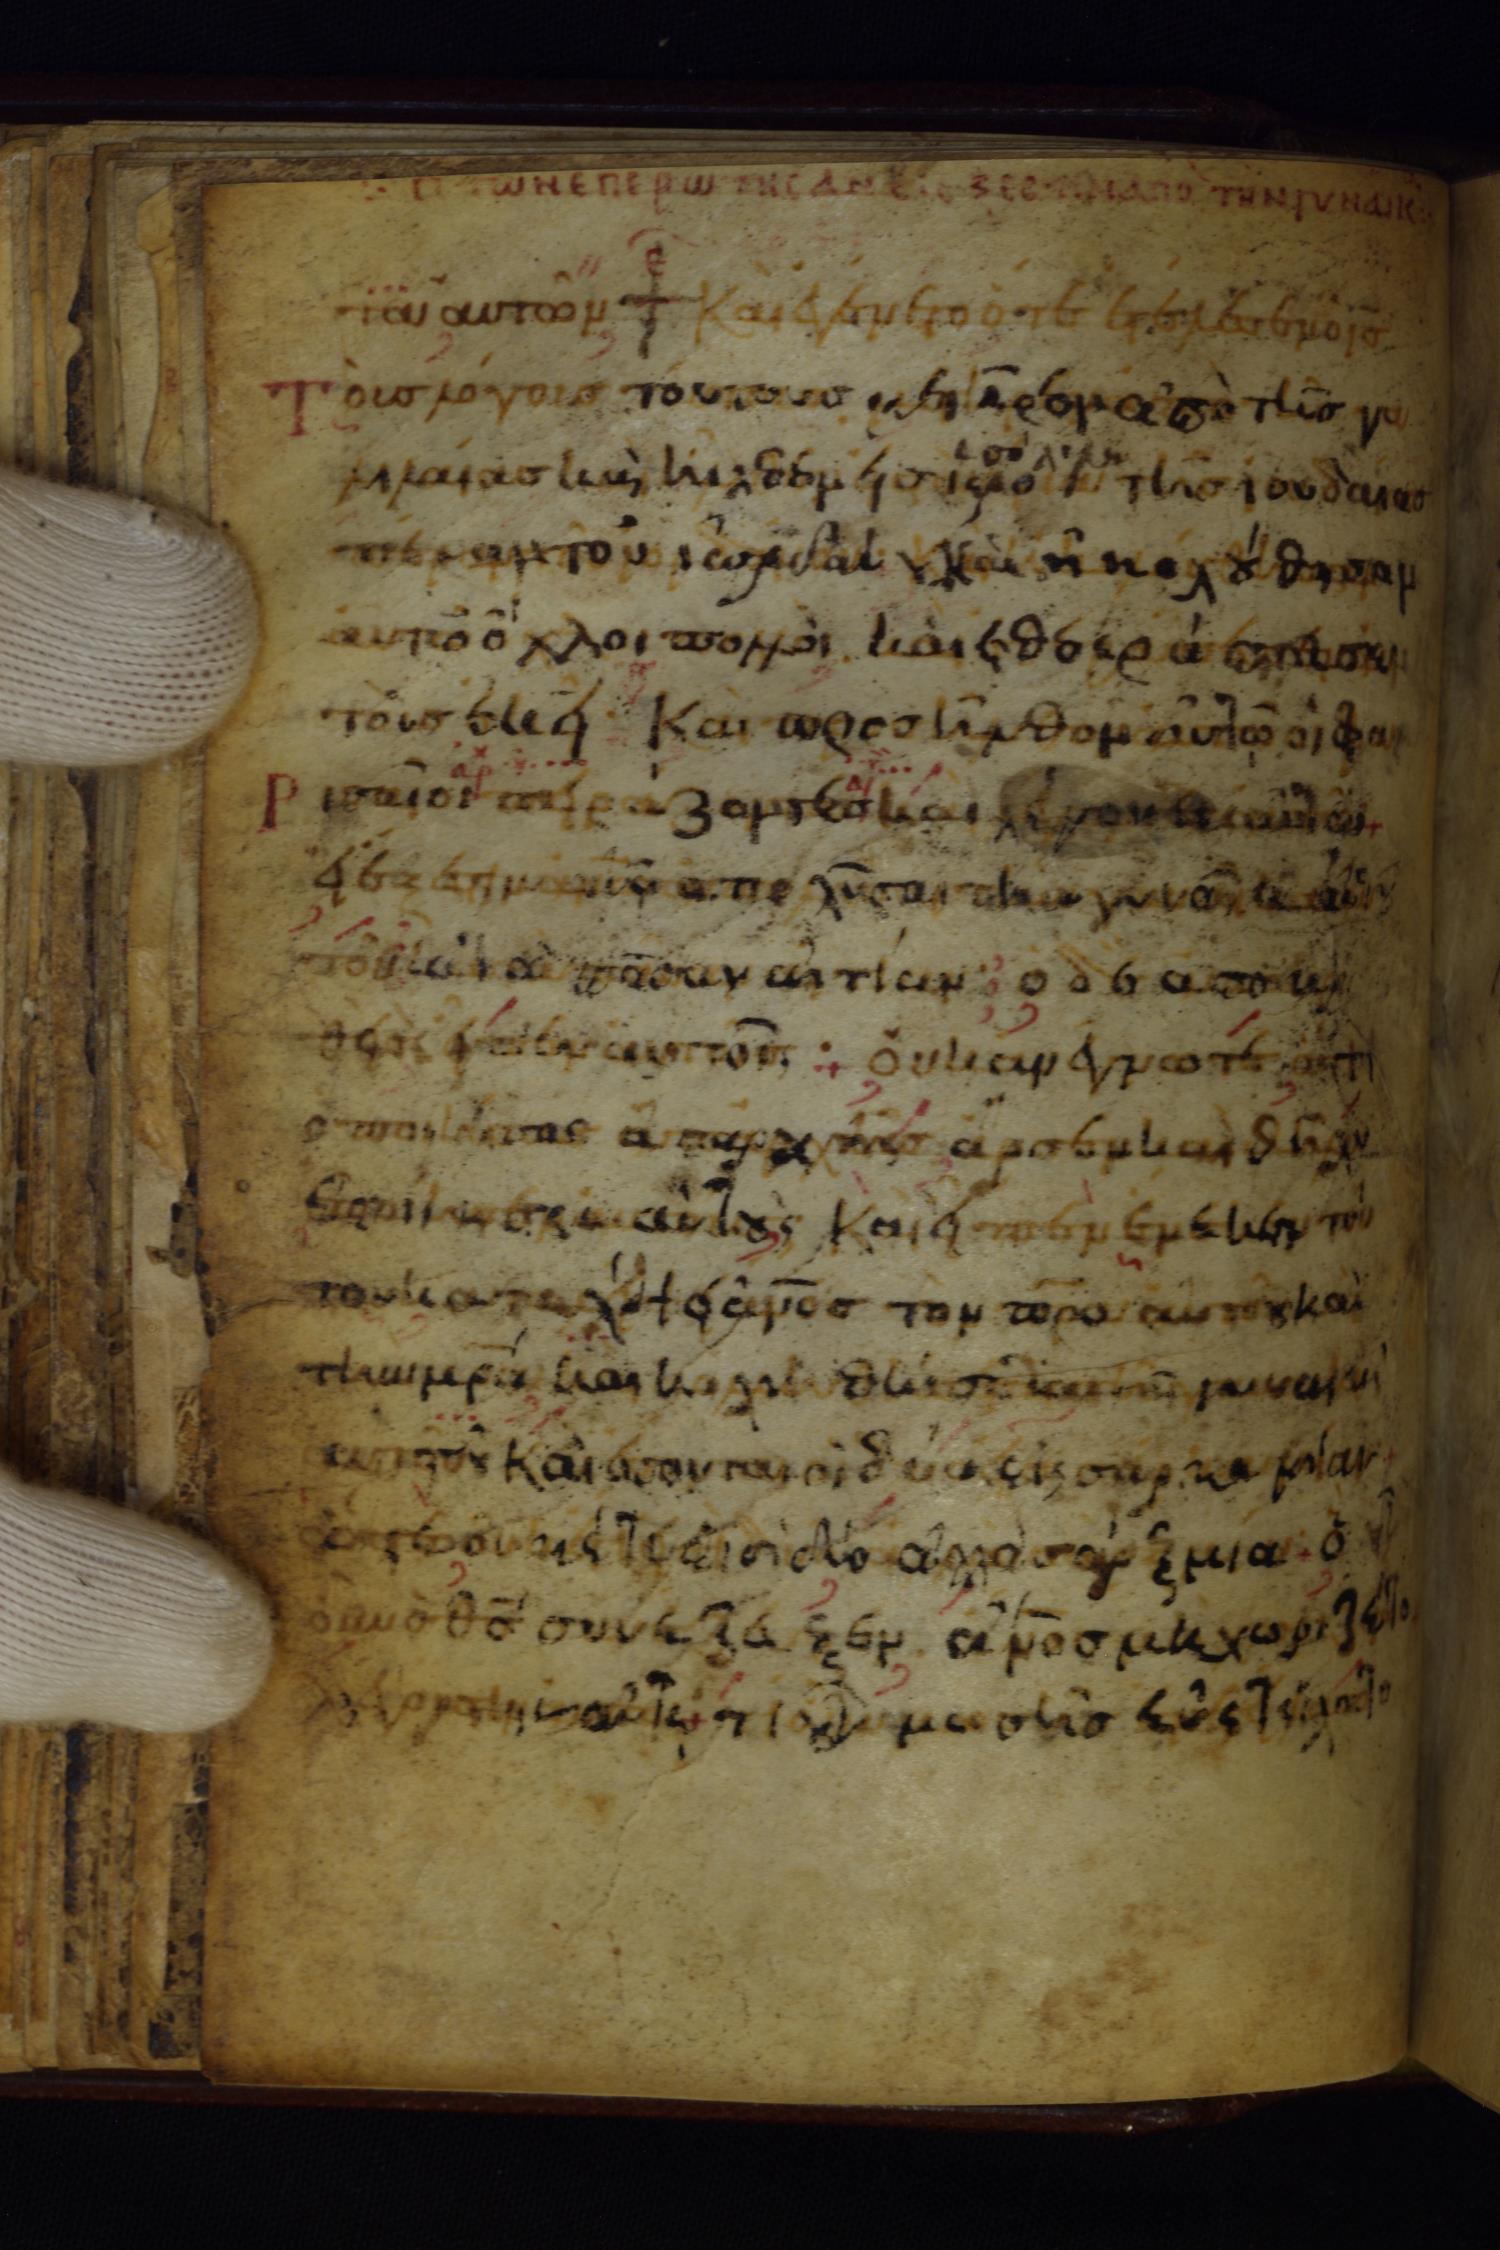 τῶν ἐπερωτησάν εἰ ἔξεστιν ἀπο τὴν γυναῖκ
των αυτῶν Και ἐγένετο ὁτε ἐτέλεσεν ὁ ισ
Τοὺς λόγους τούτους μετῆρεν ἀπὸ τῆσ γα
λιλαίασ καὶ ἦλθεν εἰσ τὰ ὅρια τῆσ ἰουδαίασ
πέραν τοῦ ἰορδάν Και ἠκολούθησαν
αυτῶ ὄχλοι πολλοὶ καὶ ἐθεράπευσεν
αυτοὺσ ἐκεῖ Και προσῆλθον αὐτῶ οἱ φα
Ρισαῖοι πειράζοντεσ και λέγοντεσ αὐτῶ
εἰ ἔξεστιν ἀνῶ ἀπολῦσαι τὴν γυναῖκα αὐτοῦ
κατὰ πᾶσαν αἰτίαν ὁ δε ἀποκρι
θεὶς εἶπεν αυτοῖσ οὐκ ἀνέγνωτε ὁτι
ὁ ποιήσας ἀπαρχῆσ ἄρσεν και θῆλυ
ἐποίησεν αὐτοὺς Και εἶπεν ἕνεκεν τού
του καταλείψει ἄνοσ τὸν πρα αυτοῦ και
τὴν μρα και κολληθήσεται τῆ γυναικὶ
αυτοῦ Και ἔσονται οἱ δύο εἰς σάρκα μίαν
ὥστε οὐκέτι εἰσὶ δύο ἀλλὰ σὰρξ μία ὃ
οὖν ὁ θσ συνέζευξεν ἄνοσ μὴ χωριζέτω
λέγουσιν αὐτῶ τί οὖν μωσῆσ ἐνετείλατο